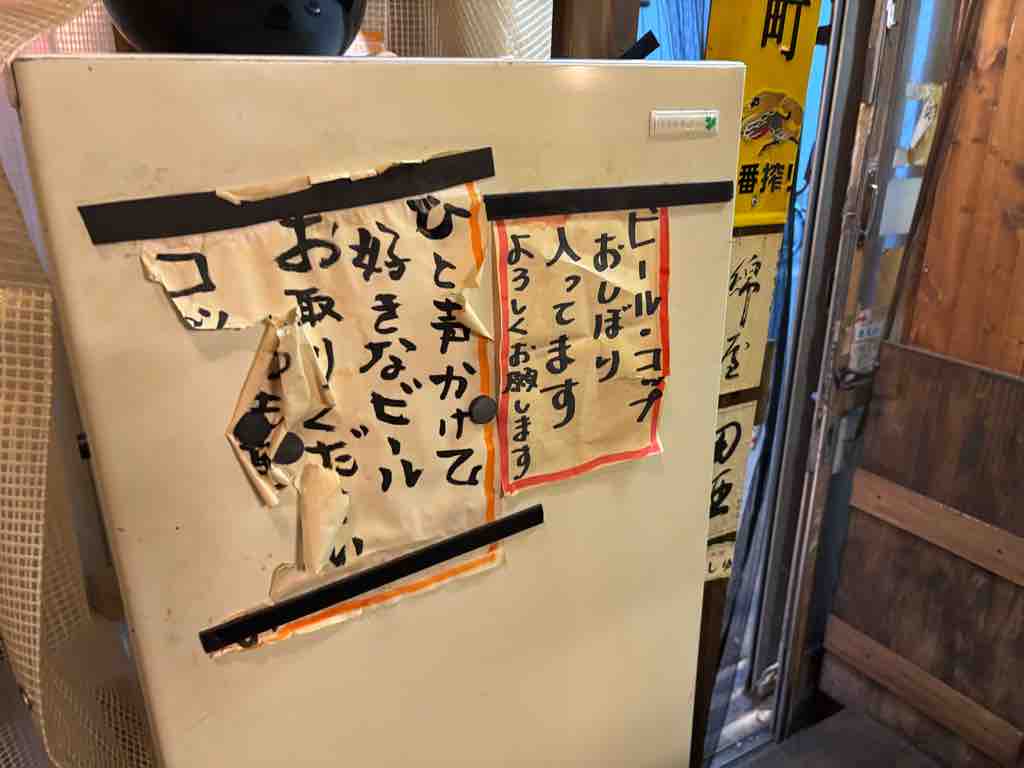 ビール・コップ
おしぼり
入ってます
よろしくお願します
ひと声かけて
好きなビール
お取りください
コッ
町
一番搾り
綿屋